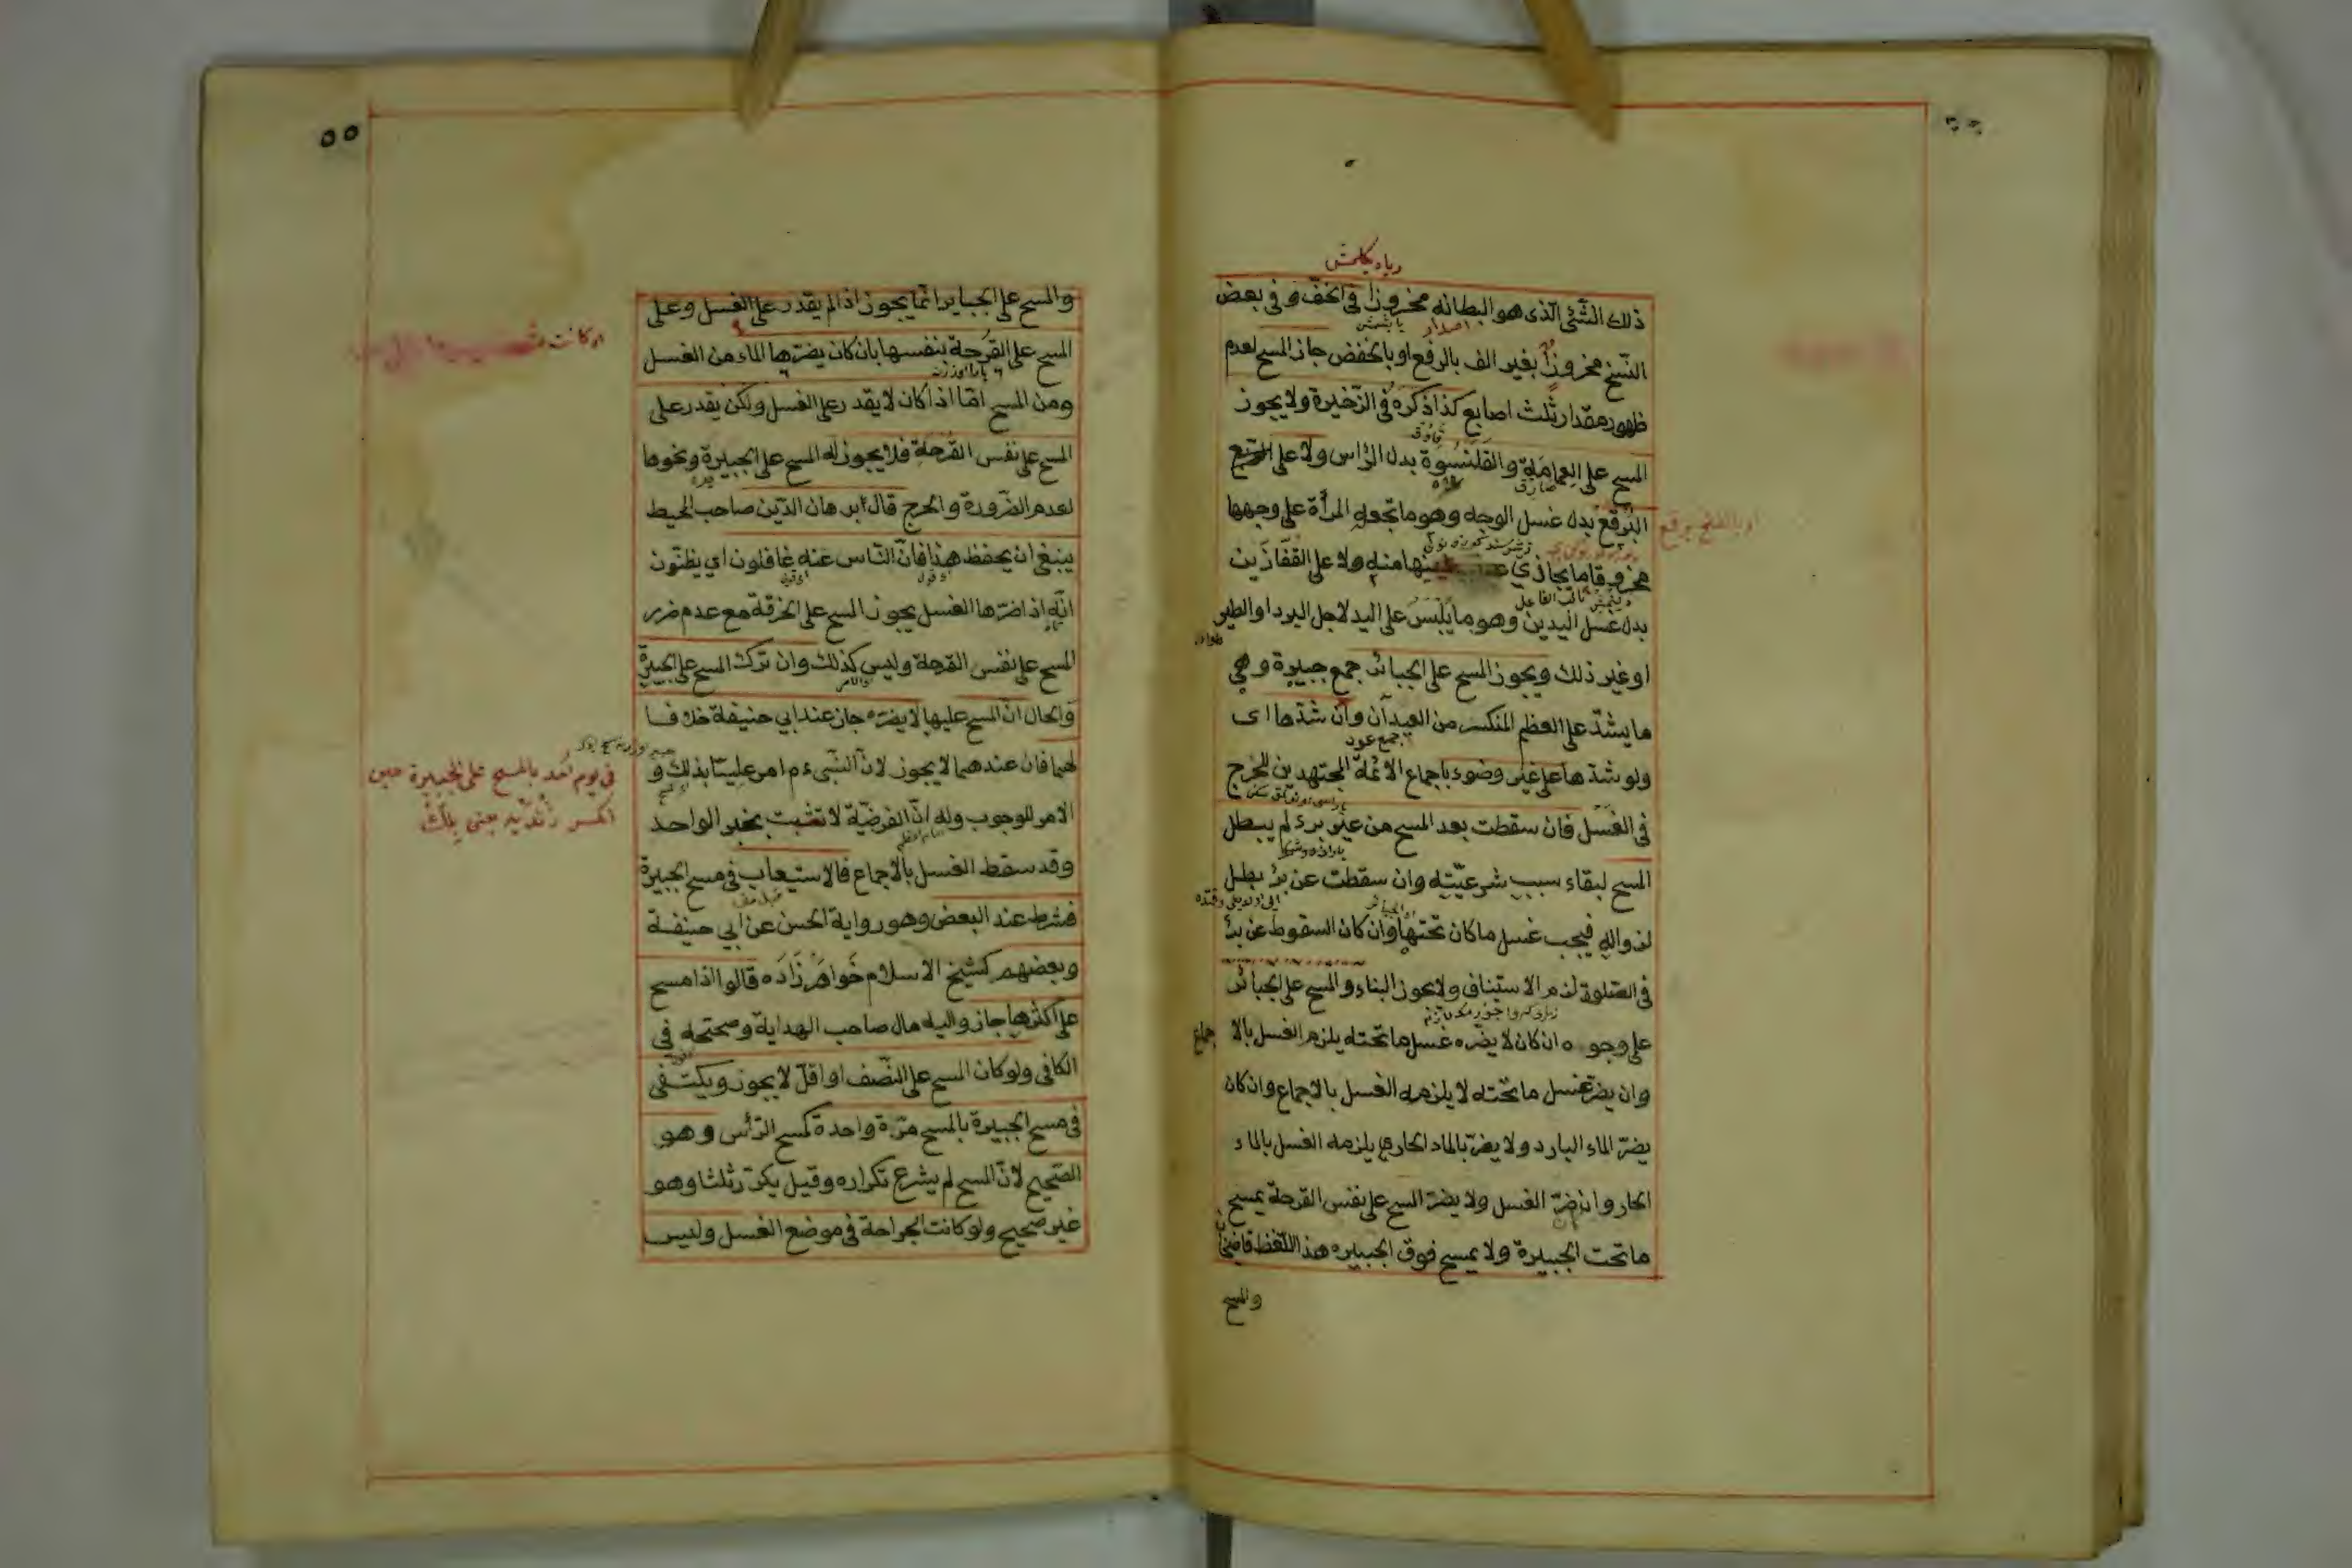 ذلك الشئ الذى هو البطانه مخروزا فى الخف وفى بعض
النسخ مخروزٌ بغير الف بالرفع او بالخفض جاز المسح لعدم
ظهور مقدار ثلث اصابع كذا ذكره فى الذخيرة ولا يجوز
المسح على العمامة والقلنسوة بدل الراس ولا على
البرقع بدل غسل الوجه وهو ما تجعله المرأة على وجهها
مخروقا ما يحاذى منه ولا على القفازين
بدل غسل اليدين وهو ما يلبس على اليد لاجل البرد او الطير
او غير ذلك ويجوز المسح على الجبائر جمع جبيرة وهى
ما يشدّ على العظم المنكسر من العيدان وان شدها اى
جمع عود
ولو شدها على غير وضوء باجماع الائمة المجتهدين للحرج
فى الغسل فان سقطت بعد المسح من غير برء لم يبطل
المسح لبقاء سبب شرعيّته وان سقطت عن برء بطل
لزواله فيجب غسل ما كان تحتها وان كان السقوط عن برء
فى الصلوة لزم الاستيناف ولا يجوز البناء والمسح على الجبائر
على وجوه ان كان لا يضره غسل ما تحته يلزم الغسل بالا جماع
وان يضرّ غسل ما تحته لا يلزمه الغسل بالاجماع وان كان
يضرّ الماء البارد ولا يضرّ بالماء الحار يلزمه الغسل بالماء
الحار وان ضرّ الغسل ولا يضرّ المسح على نفس القرحة يمسح
ما تحت الجبيرة ولا يمسح فوق الجبيره هذا اللفظ قاضيخان
والمسح
٥٥
والمسح على الجباير انما يجوز اذا لم يقدر على الغسل وعلى
المسح على القرحة بنفسها بان كان يضرّها الماء من الغسل
ومن المسح امّا اذا كان لا يقدر على الغسل ولكن يقدر على
المسح على نفس القرحة فلا يجوز له المسح على الجبيرة ونحوها
لعدم الضرورة والحرج قال برهان الدين صاحب المحيط
ينبغى ان يحفظ هذا فانّ الناس عنه غافلون اي يظنّون
انّه اذا ضرّها الغسل يجوز المسح على الخرقة مع عدم ضرر
المسح على نفس القرحة وليس كذلك وان ترك المسح على الجبيرة
والحال انّ المسح عليها لا يضره جاز عند ابي حنيفة خلافا
لهما فان عندهما لا يجوز لانّ النّبى ء م امر عليّا بذلك و
فى يوم احد بالمسح على الجبيرة حين
الامر للوجوب وله انّ الفرضيّة لا تثبت بخبر الواحد
وقد سقط الغسل بالاجماع فالاستيعاب فى مسح الجبيرة
فشرط عند البعض وهو رواية الحسن عن ابي حنيفة
وبعضهم كشيخ الاسلام خواهر زاده قالوا اذا مسح
على اكثرها جاز واليه مال صاحب الهداية وصححه فى
الكافى ولو كان المسح على النّصف او اقلّ لا يجوز ويكتفى
فى مسح الجبيرة بالمسح مرّة واحدة كمسح الرّأس وهو
الصّحيح لانّ المسح لم يشرع تكراره وقيل يكرّر ثلثا وهو
غير صحيح ولو كانت الجراحة فى موضع الغسل وليس